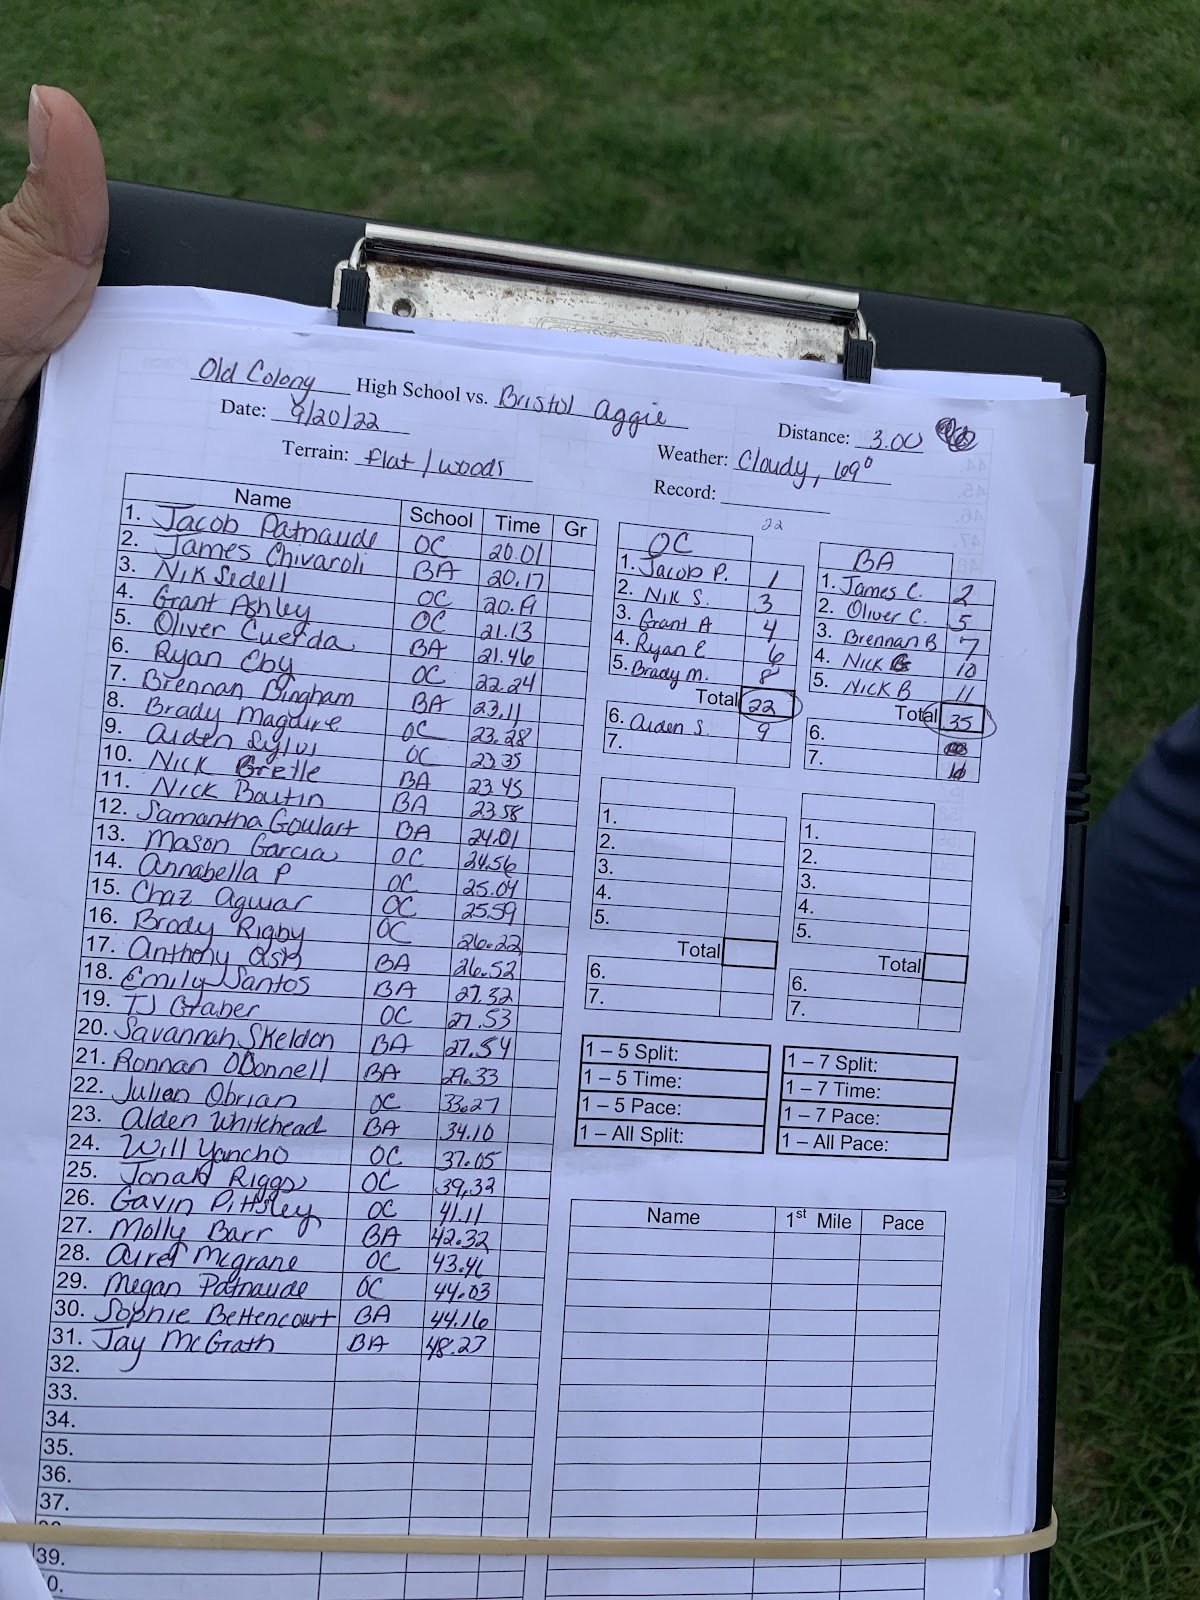 Old Colony High School vs. Bristol Aggie
Date: 9/20/22 Distance: 3.00
Terrain: flat / woods Weather: Cloudy, 69°
Record:
Name School Time Gr
1. Jacob Patnaude OC 20.01
2. James Chivaroli BA 20.17
3. Nik Sedell OC 20.19
4. Grant Ashley OC 21.13
5. Oliver Cuerda BA 21.46
6. Ryan Eby OC 22.24
7. Brennan Bingham BA 23.11
8. Brady Maguire OC 23.28
9. Aiden Sylvi OC 23.35
10. Nick Brelle BA 23.45
11. Nick Boutin BA 23.58
12. Samantha Goulart BA 24.01
13. Mason Garcia OC 24.56
14. Annabella P OC 25.04
15. Chaz Aguiar OC 25.59
16. Brody Rigby OC 26.22
17. Anthony BA 26.52
18. Emily Santos BA 27.32
19. TJ Graber OC 27.53
20. Savannah Skeldon BA 27.54
21. Ronnan ODonnell BA 29.33
22. Julien Obrian OC 33.27
23. Alden Whitehead BA 34.10
24. Will Yancho OC 37.05
25. Jonah Riggs OC 39,32
26. Gavin Pittsley OC 41.11
27. Molly Barr BA 42.32
28. Mcgrane OC 43.46
29. Megan Patnaude OC 44.03
30. Sophie Bettencourt BA 44.16
31. Jay McGrath BA 48.23
32.
33.
34.
35.
36.
37.
39.
22
OC
1. Jacob P. 1
2. Nik S. 3
3. Grant A 4
4. Ryan E 6
5. Brady M. 8
Total 22
6. Aiden S. 9
7.
BA
1. James C. 2
2. Oliver C. 5
3. Brennan B 7
4. Nick 10
5. Nick B 11
Total 35
6.
7.
1.
2.
3.
4.
5.
Total
6.
7.
1.
2.
3.
4.
5.
Total
6.
7.
1 – 5 Split:
1 – 5 Time:
1 – 5 Pace:
1 – All Split:
1 – 7 Split:
1 – 7 Time:
1 – 7 Pace:
1 – All Pace:
Name 1st Mile Pace